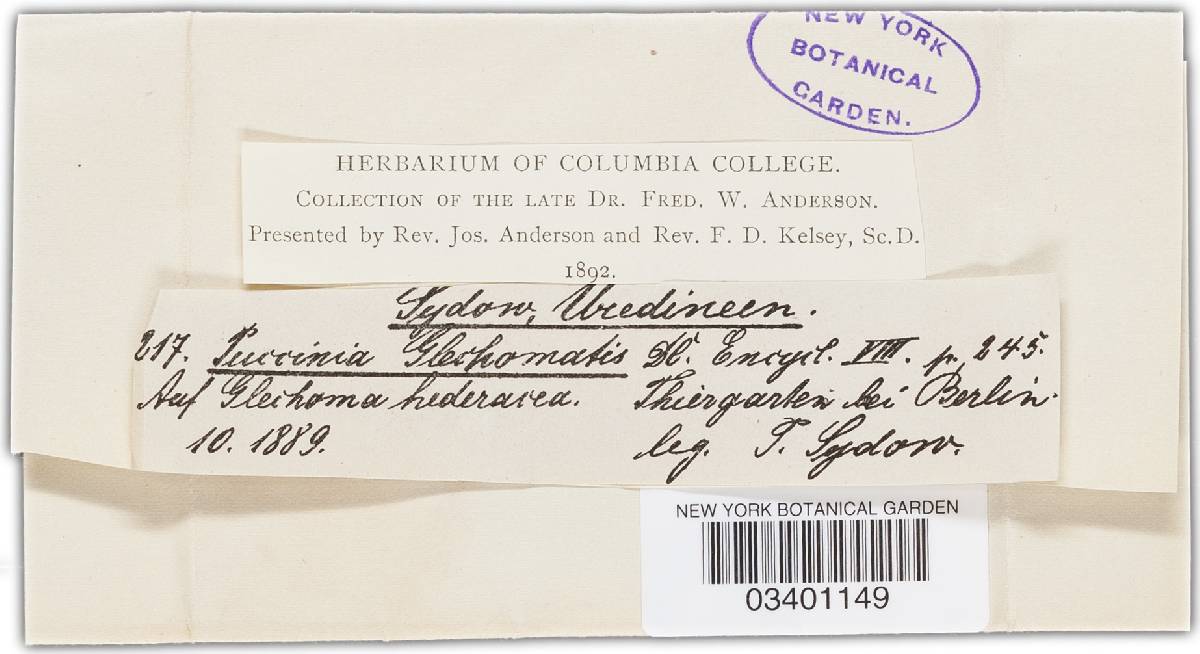 NEW YORK
BOTANICAL
GARDEN.
HERBARIUM OF COLUMBIA COLLEGE.
COLLECTION OF THE LATE DR. FRED. W. ANDERSON.
Presented by Rev. Jos. Anderson and Rev. F. D. Kelsey, Sc.D.
1892.
Sydow, Uredineen.
217. Puccinia Glechomatis DC. Encycl. VIII. p. 245.
Auf Glechoma hederacea. Thiergarten bei Berlin.
10. 1889. leg. P. Sydow.
NEW YORK BOTANICAL GARDEN
03401149